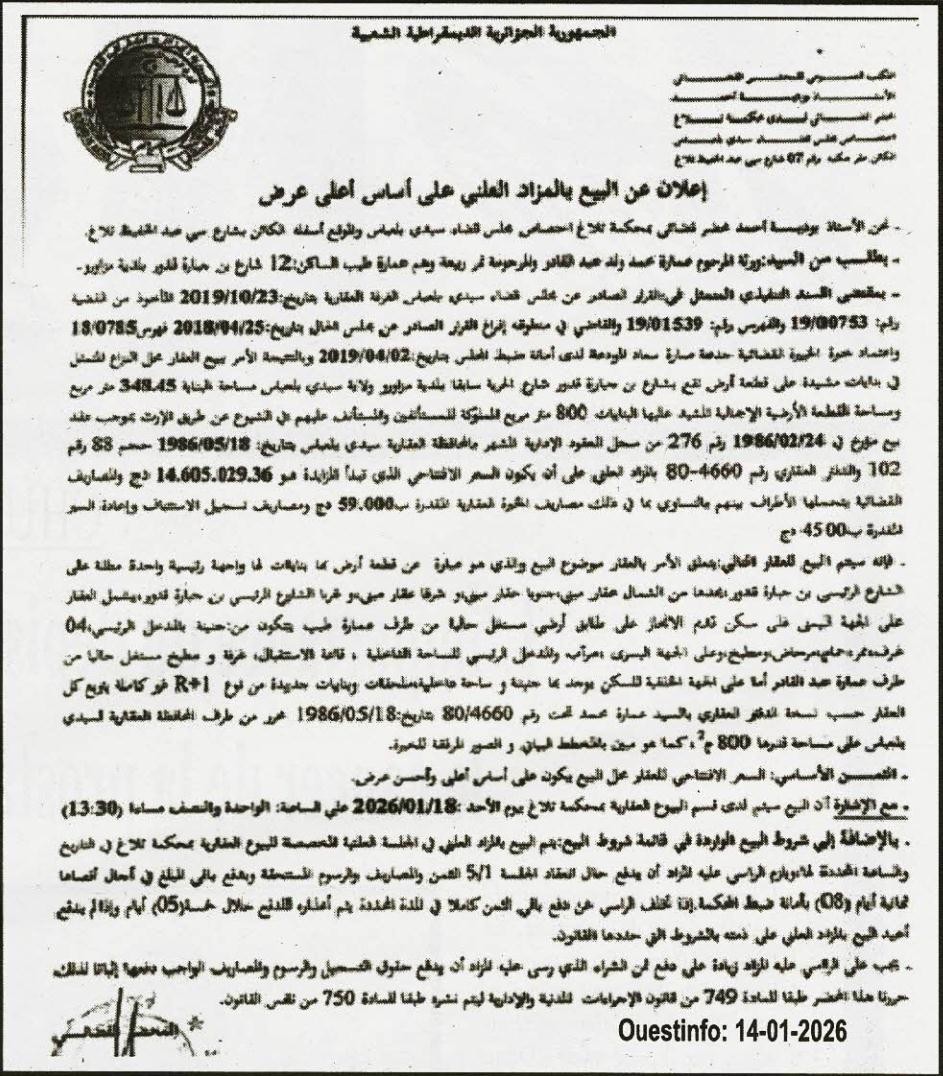 الجمهورية الجزائرية الديمقراطية الشعبية
المكتب العمومي للمحضر القضائي
الأستاذ بوديسة أحمد
محضر قضائي لدى محكمة تلاغ
اختصاص مجلس قضاء سيدي بلعباس
الكائن مقر مكتبه رقم 07 شارع سي عبد الحفيظ تلاغ
إعلان عن البيع بالمزاد العلني على أساس أعلى عرض
- نحن الأستاذ بوديسة أحمد محضر قضائي بمحكمة تلاغ اختصاص مجلس قضاء سيدي بلعباس والموقع أسفله الكائن بشارع سي عبد الحفيظ تلاغ.
- بطلب من السيد: ورثة المرحوم عمارة محمد ولد عبد القادر والمرحومة نمر ربيعة وهم عمارة طيب الساكن: 12 شارع بن حبارة قدور بلدية مزاورو-
- بمقتضى السند التنفيذي المتمثل في: القرار الصادر عن مجلس قضاء سيدي بلعباس الغرفة العقارية بتاريخ: 2019/10/23 المأخوذ من القضية
رقم: 19/00753 والفهرس رقم: 19/01539 والقاضي في منطوقه إفراغ القرار الصادر عن مجلس الحال بتاريخ: 2018/04/25 فهرس 18/0785
واعتماد خبرة الخبيرة القضائية سعاد المودعة لدى أمانة ضبط المجلس بتاريخ: 2019/04/02 وبالنتيجة الأمر ببيع العقار محل النزاع المتمثل
في بنايات مشيدة على قطعة أرض تقع بشارع بن حبارة قدور شارع الحرية سابقا بلدية مزاورو ولاية سيدي بلعباس مساحة المبناية 348.45 متر مربع
ومساحة القطعة الأرضية الإجمالية المشيد عليها البنايات 800 متر مربع المملوكة للمستأنفين والمستأنف عليهم في الشيوع عن طريق الإرث بموجب عقد
بيع مؤرخ في 1986/02/24 رقم 276 من سجل العقود الإدارية المشهر بالمحافظة العقارية سيدي بلعباس بتاريخ: 1986/05/18 حجم 88 رقم
102 والدفتر العقاري رقم 4660-80 بالمزاد العلني على أن يكون السعر الافتتاحي الذي تبدأ المزايدة هو 14.605.029.36 دج والمصاريف
القضائية يتحملها الأطراف بينهم بالتساوي بما في ذلك مصاريف الخبرة العقارية المقدرة ب59.000 دج ومصاريف تسجيل الاستئناف وإعادة السير
المقدرة ب4500 دج
- فإنه سيتم البيع للعقار التالي: يتعلق الأمر بالعقار موضوع البيع والذي هو عبارة عن قطعة أرض بها بنايات لها واجهة رئيسية واحدة مطلة على
الشارع الرئيسي بن حبارة قدور، يحدها من الشمال عقار مبني، جنوبا عقار مبني، و شرقا عقار مبني، و غربا الشارع الرئيسي بن حبارة قدور، يشمل العقار
على الجهة اليمنى على سكن قديم الانجاز على طابق أرضي مستغل حاليا من طرف عمارة طيب يتكون من: حديقة بالمدخل الرئيسي، 04
غرف، ممر، حمام، مرحاض، ومطبخ، وعلى الجهة اليسرى، مرآب والمدخل الرئيسي للساحة الداخلية، قاعة الاستقبال، غرفة و مطبخ مستغل حاليا من
طرف عمارة عبد القادر أما على الجهة الخلفية للسكن يوجد بها حديقة و ساحة داخلية، ملحقات وبنايات جديدة من نوع R+1 غير كاملة يتربع كل
العقار حسب نسخة الدفتر العقاري بالسيد عمارة محمد تحت رقم 80/4660 بتاريخ: 1986/05/18 محرر من طرف المحافظة العقارية لسيدي
بلعباس على مساحة قدرها 800 م2، كما هو مبين بالمخطط البياني و الصور المرفقة للخبرة.
- الثمن الأساسي: السعر الافتتاحي للعقار محل البيع يكون على أساس أعلى وأحسن عرض.
- مع الإشارة أن البيع سيتم لدى قسم البيوع العقارية بمحكمة تلاغ يوم الأحد: 2026/01/18 على الساعة: الواحدة والنصف مساءا (13:30)
- بالإضافة إلى شروط البيع الواردة في قائمة شروط البيع: يتم البيع بالمزاد العلني في الجلسة العلنية المخصصة للبيوع العقارية بمحكمة تلاغ في التاريخ
والساعة المحددة لها، ويلزم الراسي عليه المزاد أن يدفع حال انعقاد الجلسة 5/1 الثمن والمصاريف والرسوم المستحقة ويدفع باقي المبلغ في آجال أقصاها
ثمانية أيام (08) بأمانة ضبط المحكمة، إذا تخلف الراسي عن دفع باقي الثمن كاملا في المدة المحددة يتم أعذاره للدفع خلال خمسة (05) أيام وإذا لم يدفع
أعيد البيع بالمزاد العلني على ذمته بالشروط التي حددها القانون.
- يجب على الراسي عليه المزاد زيادة على دفع ثمن الشراء الذي رسى عليه المزاد أن يدفع حقوق التسجيل والرسوم والمصاريف الواجب دفعها إثباتا لذلك
حررنا هذا المحضر طبقا للمادة 749 من قانون الإجراءات المدنية والإدارية ليتم نشره طبقا للمادة 750 من نفس القانون.
المحضر القضائي
Ouestinfo: 14-01-2026